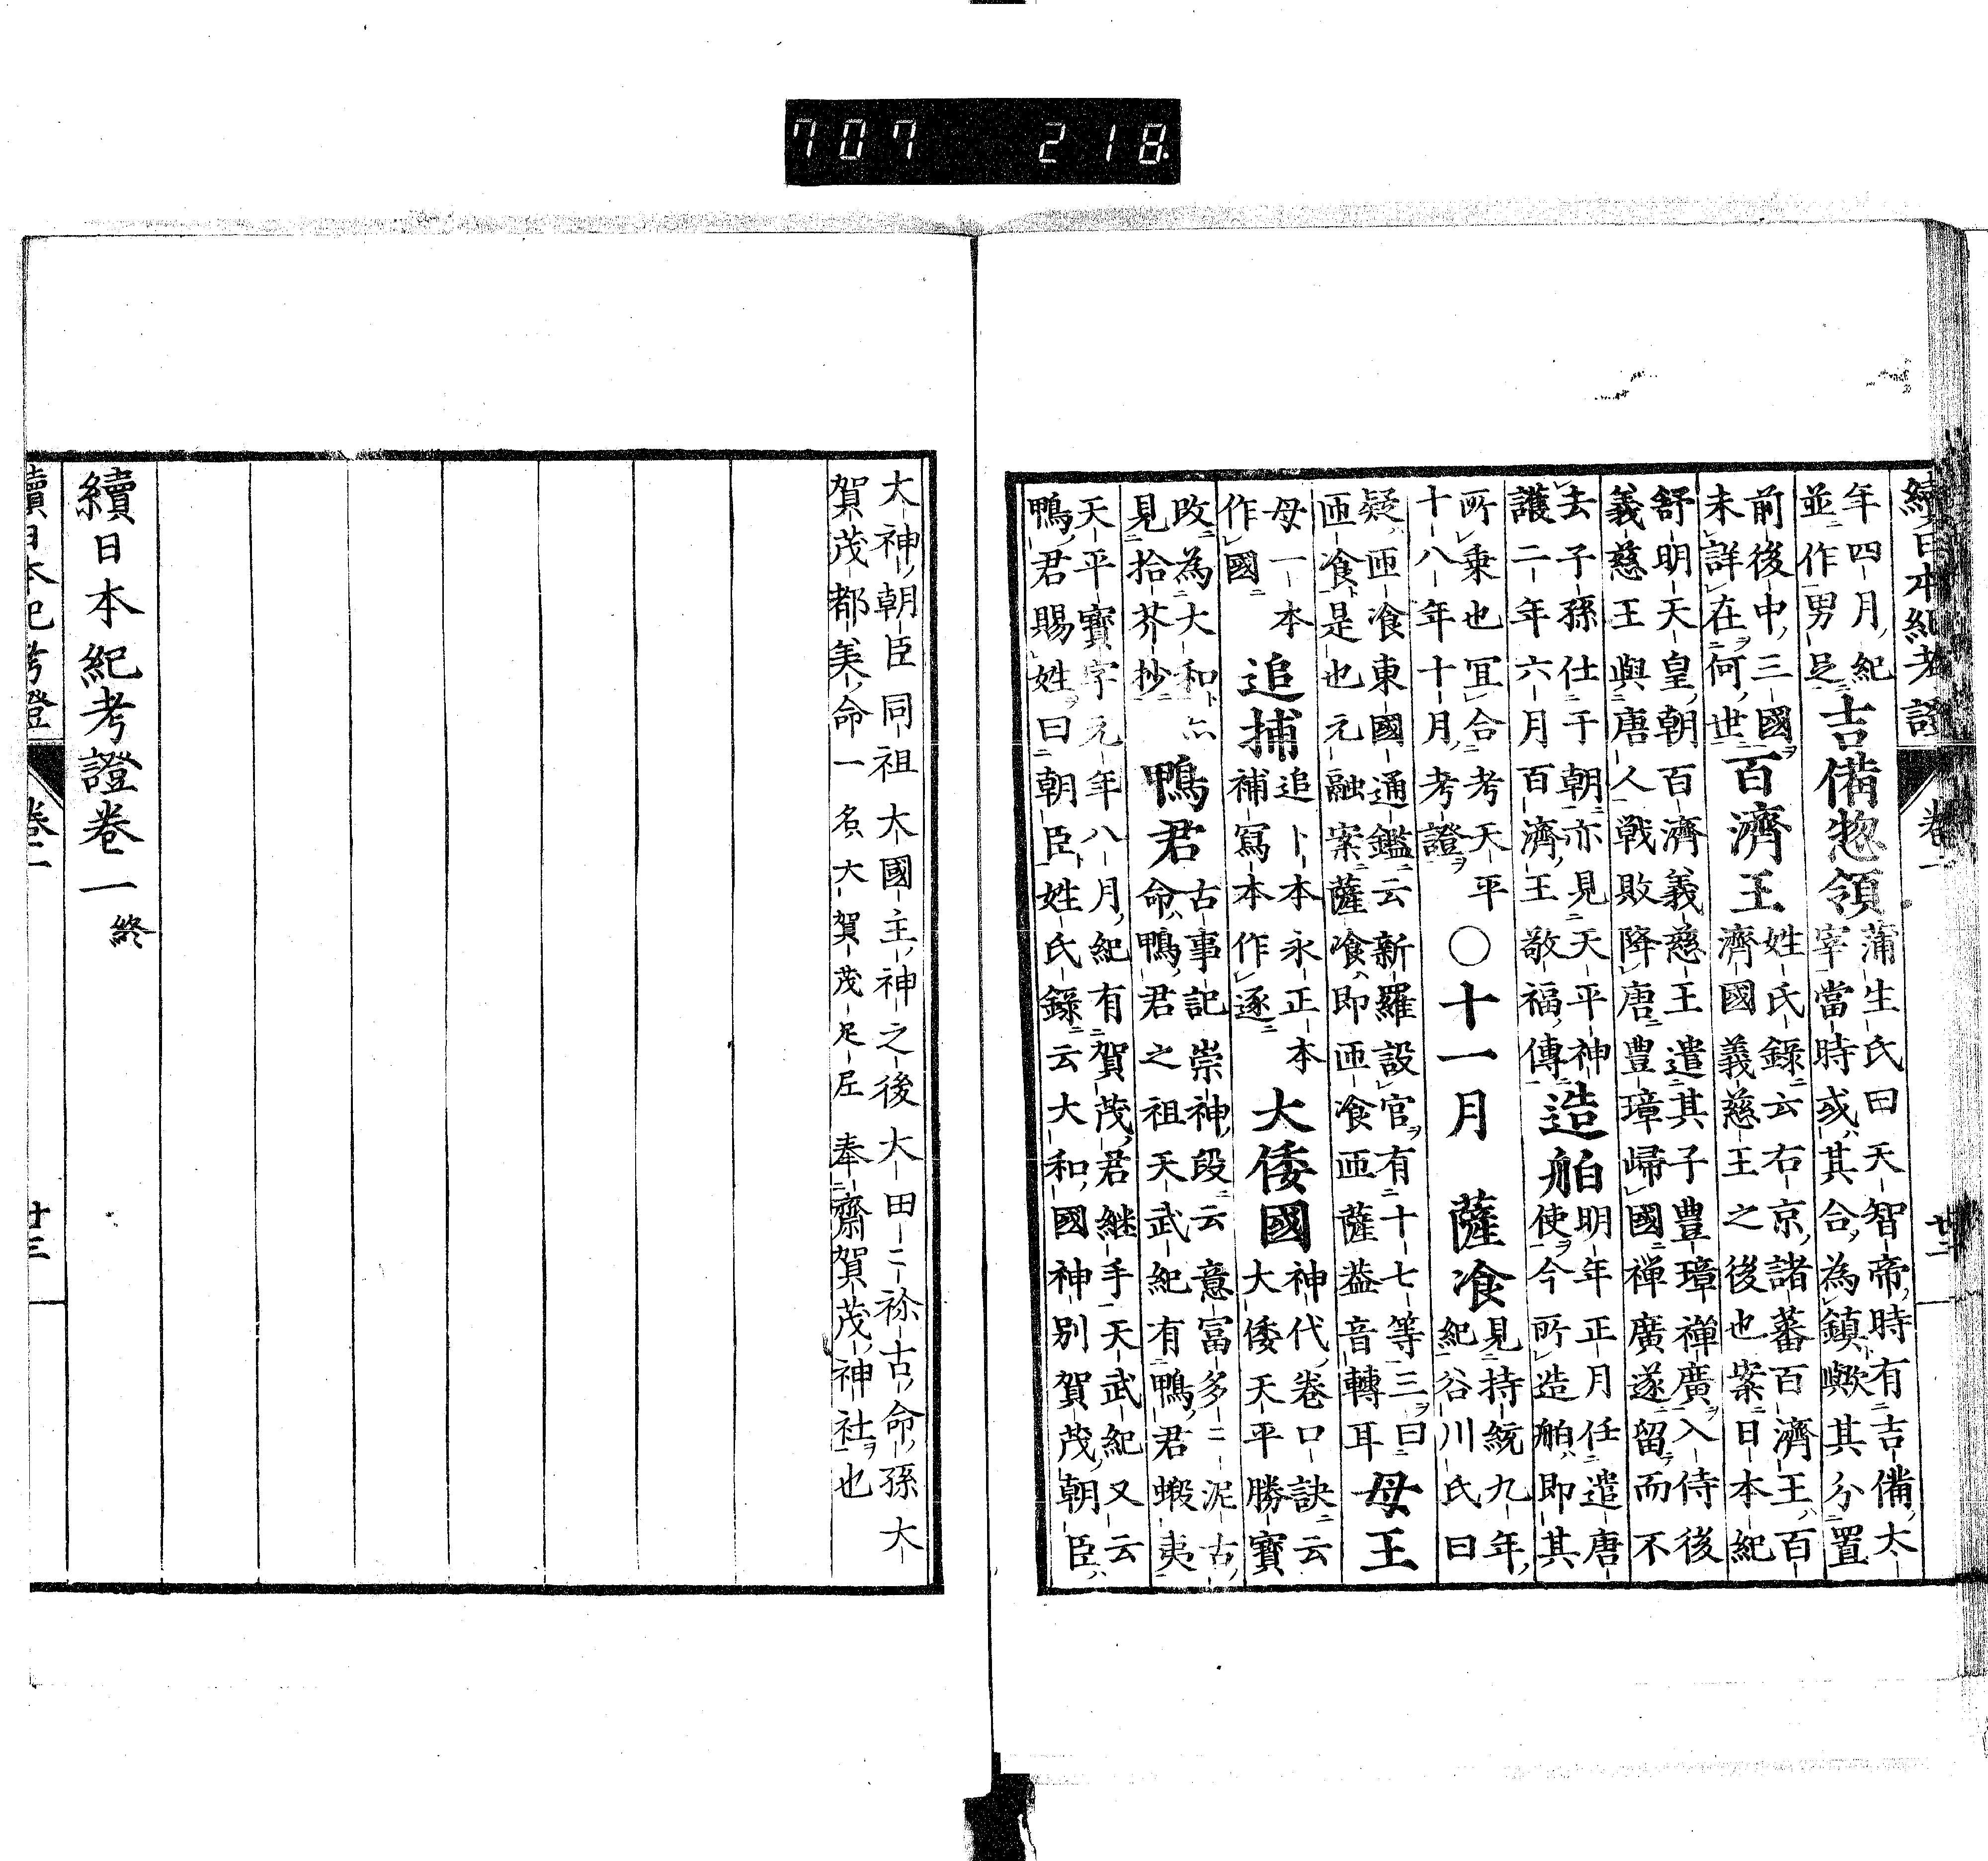 續日本紀考證 卷一 廿二
年四月紀
並作男足
吉備惣領
蒲生氏曰天智帝時有吉備大
宰當時或其合為鎮歟其分置
前後中三國
未詳在何世
百濟王
姓氏錄云右京諸蕃百濟王百
濟國義慈王之後也案日本紀
舒明天皇朝百濟義慈王遣其子豊璋禅廣入侍後
義慈王與唐人戦敗降唐豊璋歸國禅廣遂留而不
去子孫仕于朝亦見天平神
護二年六月百濟王敬福傳
造舶
明年正月任遣唐
使今所造舶即其
所乗也冝合考天平
十八年十月考證
○十一月 薩飡
見持統九年
紀谷川氏曰
疑匝飡東國通鑑云新羅設官有十七等三曰
匝飡是也元融案薩飡即匝飡匝薩葢音轉耳
母王
母一本
作國
追捕
追卜本永正本
補冩本作逐
大倭國
神代卷口訣云
大倭天平勝寳
改為大和亦
見拾芥抄
鴨君
古事記崇神段云意富多〻泥古
命鴨君之祖天武紀有鴨君蝦夷
天平寳字元年八月紀有賀茂君継手天武紀又云
鴨君賜姓曰朝臣姓氏錄云大和國神別賀茂朝臣
大神朝臣同祖大國主神之後大田〻祢古命孫大
賀茂都美命一名大賀茂足尼奉齋賀茂神社也
續日本紀考證卷一 終
續日本紀考證 卷二 廿三